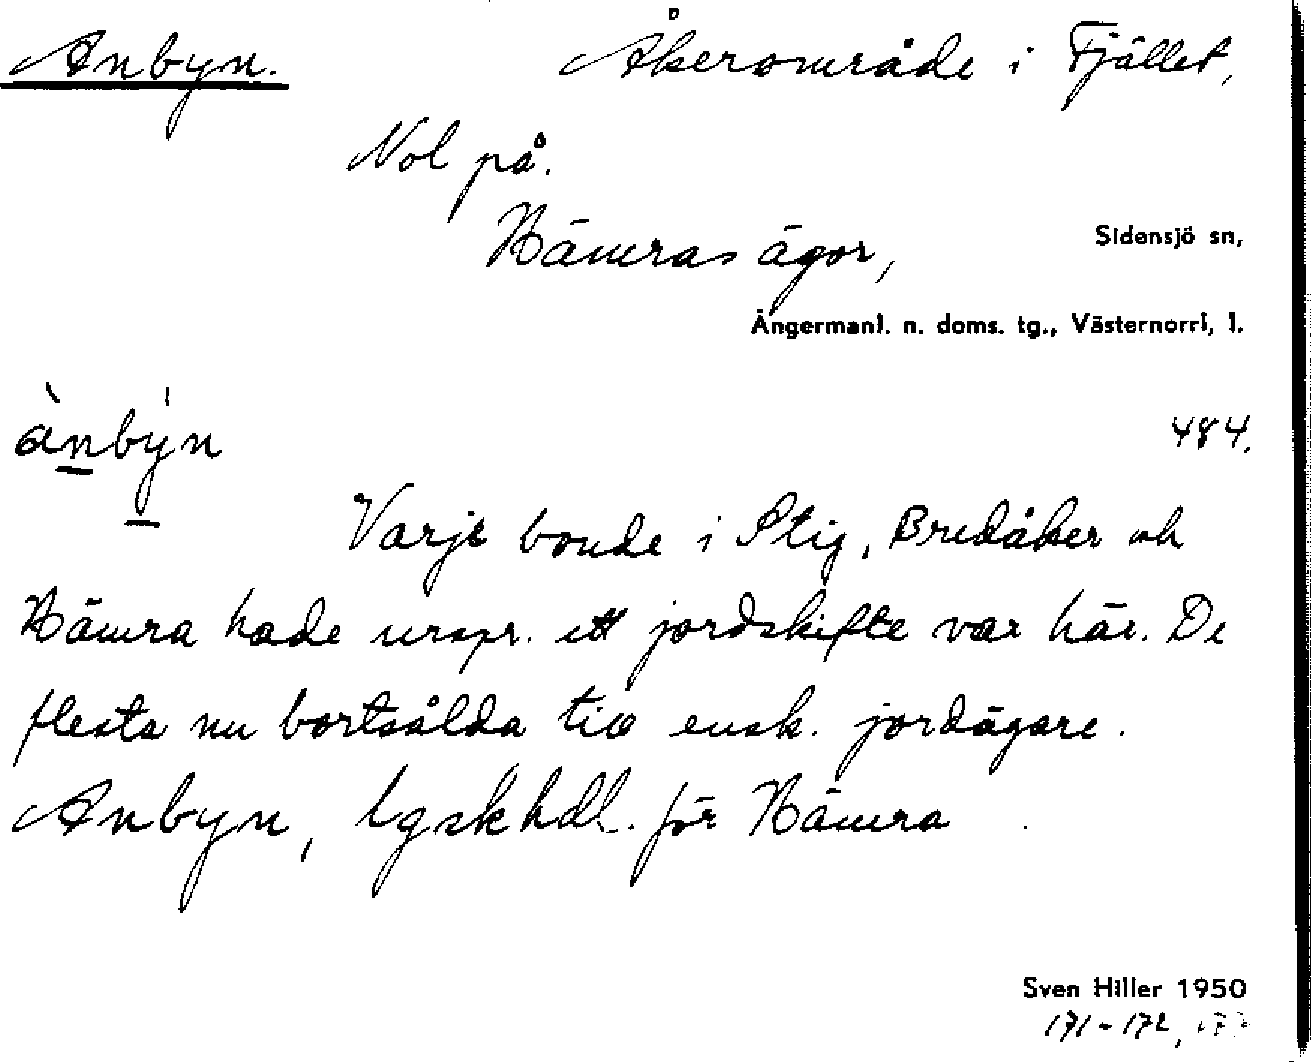 Anbyn. Åkerområde i Fjället,
Nol på.
Hämras ägor, Sidensjö sn,
Ångermanl. n. doms. tg., Västernorrl, l.
ànbýn 484.
Varje bonde i Stig, Bredåker och
Hämra hade urspr. ett jordskifte var här. De
flesta nu bortsålda till ensk. jordägare.
Anbyn, lgskhdl. för Hämra.
Sven Hiller 1950
171-172,